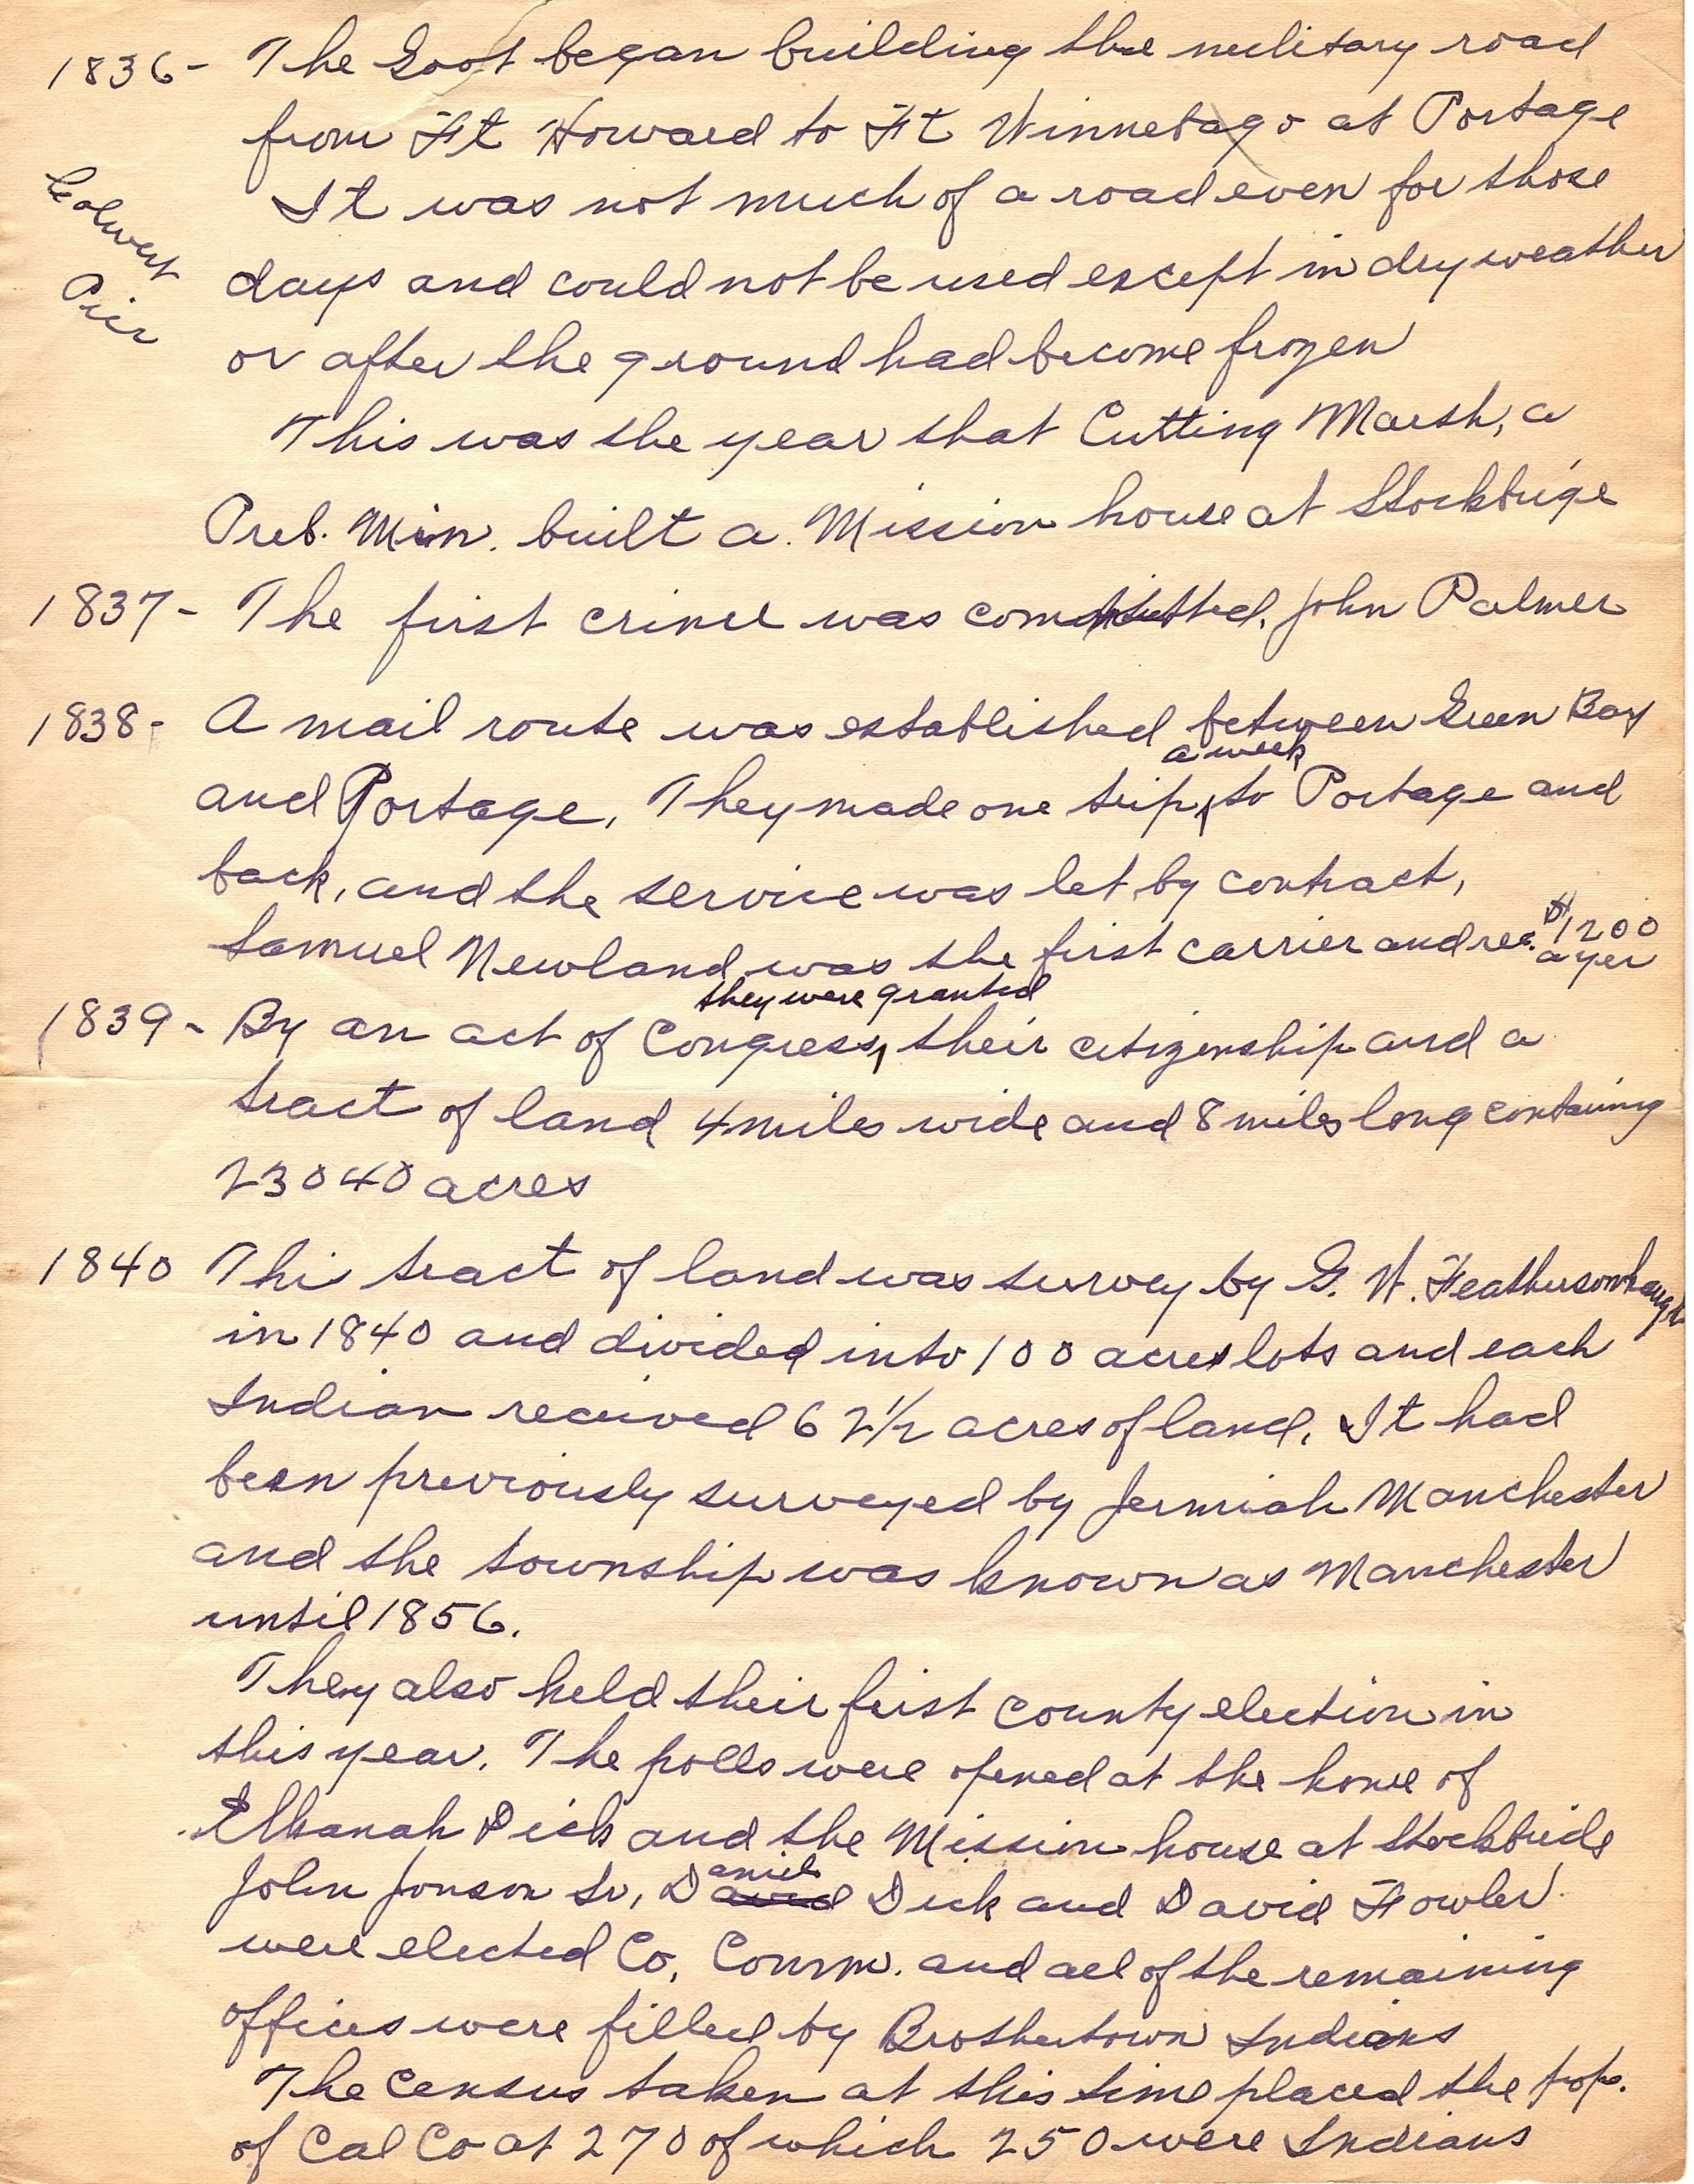 1836- The Govt began building the military road
from Ft Howard to Ft Winnebago at Portage
It was not much of a road even for those
days and could not be used except in dry weather
or after the ground had become frozen
This was the year that Cutting Marsh, a
Presb. Min. built a Mission house at Stockbrige
1837- The first crime was committed. John Palmer
1838- A mail route was established between Green Bay
a week
and Portage. They made one trip to Portage and
back, and the service was let by contract,
Samuel Newland was the first carrier and rec. $1200
a yer
they were granted
1839- By an act of Congress, their citizenship and a
tract of land 4 miles wide and 8 miles long containing
23040 acres
1840 This tract of land was survey by G. W. Feathersonhaugh
in 1840 and divided into 100 acres lots and each
Indian received 62 1/2 acres of land. It had
been previously surveyed by Jermiah Manchester
and the township was known as Manchester
until 1856.
They also held their first county election in
this year. The polls were opened at the home of
Elkanah Dick and the Mission house at Stockbride
John Jonson Sr, Daniel Dick and David Fowler
were elected Co. Comm. and all of the remaining
offices were filled by Brothertown Indians
The census taken at this time placed the pop.
of Cal Co at 270 of which 250 were Indians